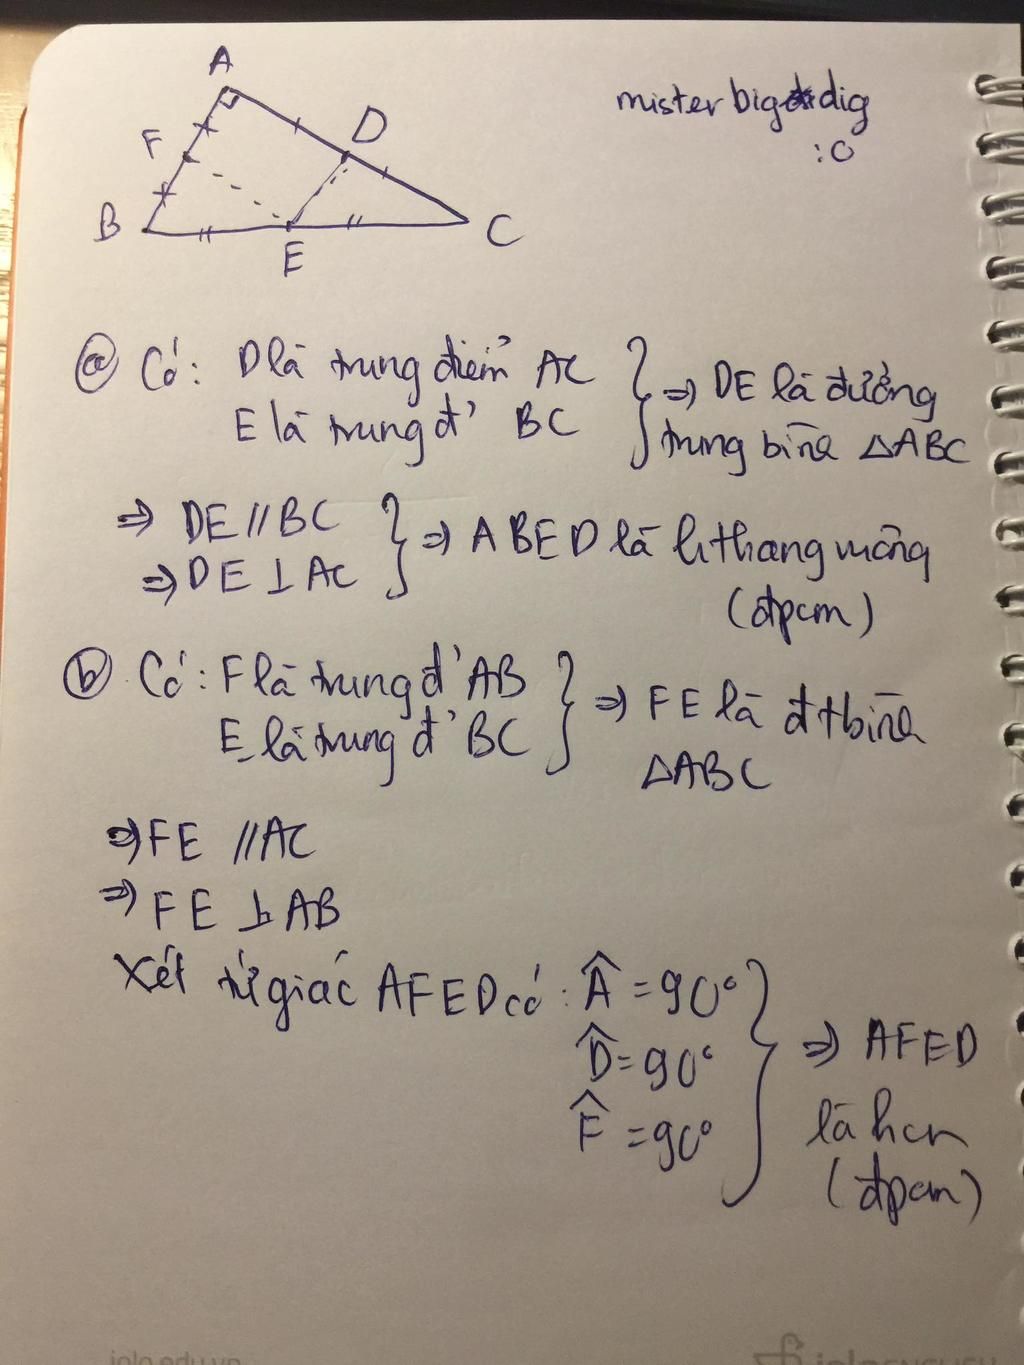 A
mister bigdig
:O
F
D
B
E
C
ⓐ Có: D là trung điểm AC
E là trung đ' BC
} => DE là đường
trung bình △ABC
=> DE // BC
=> DE ⊥ AC
} => ABED là hthang vuông
(đpcm)
ⓑ Có: F là trung đ' AB
E là trung đ' BC
} => FE là đtbình
△ABC
=> FE // AC
=> FE ⊥ AB
Xét tứ giác AFED có: Â = 90°
D̂ = 90°
F̂ = 90°
} => AFED
là hcn
(đpcm)
jolo.edu.vn